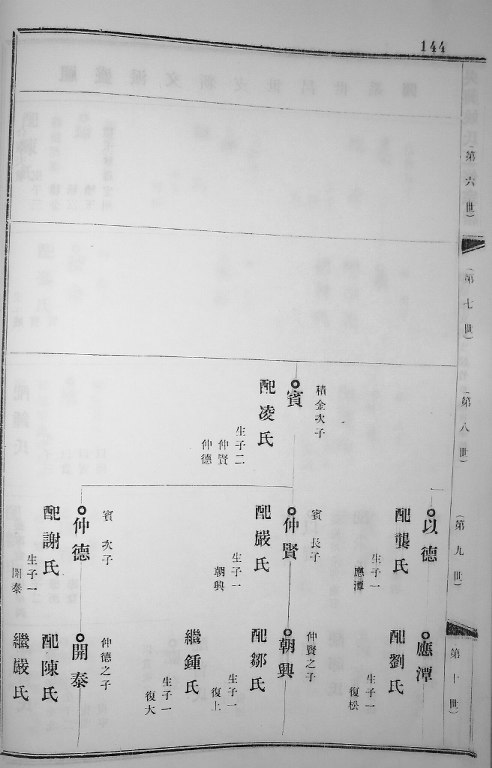 144
(第六世)
(第七世)
(第八世)
(第九世)
(第十世)
積金次子
賓
配凌氏
生子二
仲賢
仲德
以德
配龔氏
生子一
應潭
賓長子
仲賢
配嚴氏
生子一
朝興
賓次子
仲德
配謝氏
生子一
開泰
應潭
配劉氏
生子一
復松
仲賢之子
朝興
配鄒氏
生子一
復上
繼鍾氏
生子一
復大
仲德之子
開泰
配陳氏
繼嚴氏